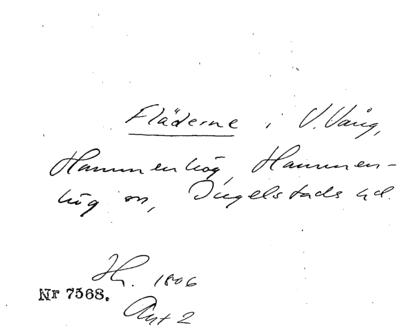 Fläderne i V. Vång,
Hammenhög, Hammen-
hög sn, Ingelstads hd.
Hr. 1806
Nr 7568.
Akt 2